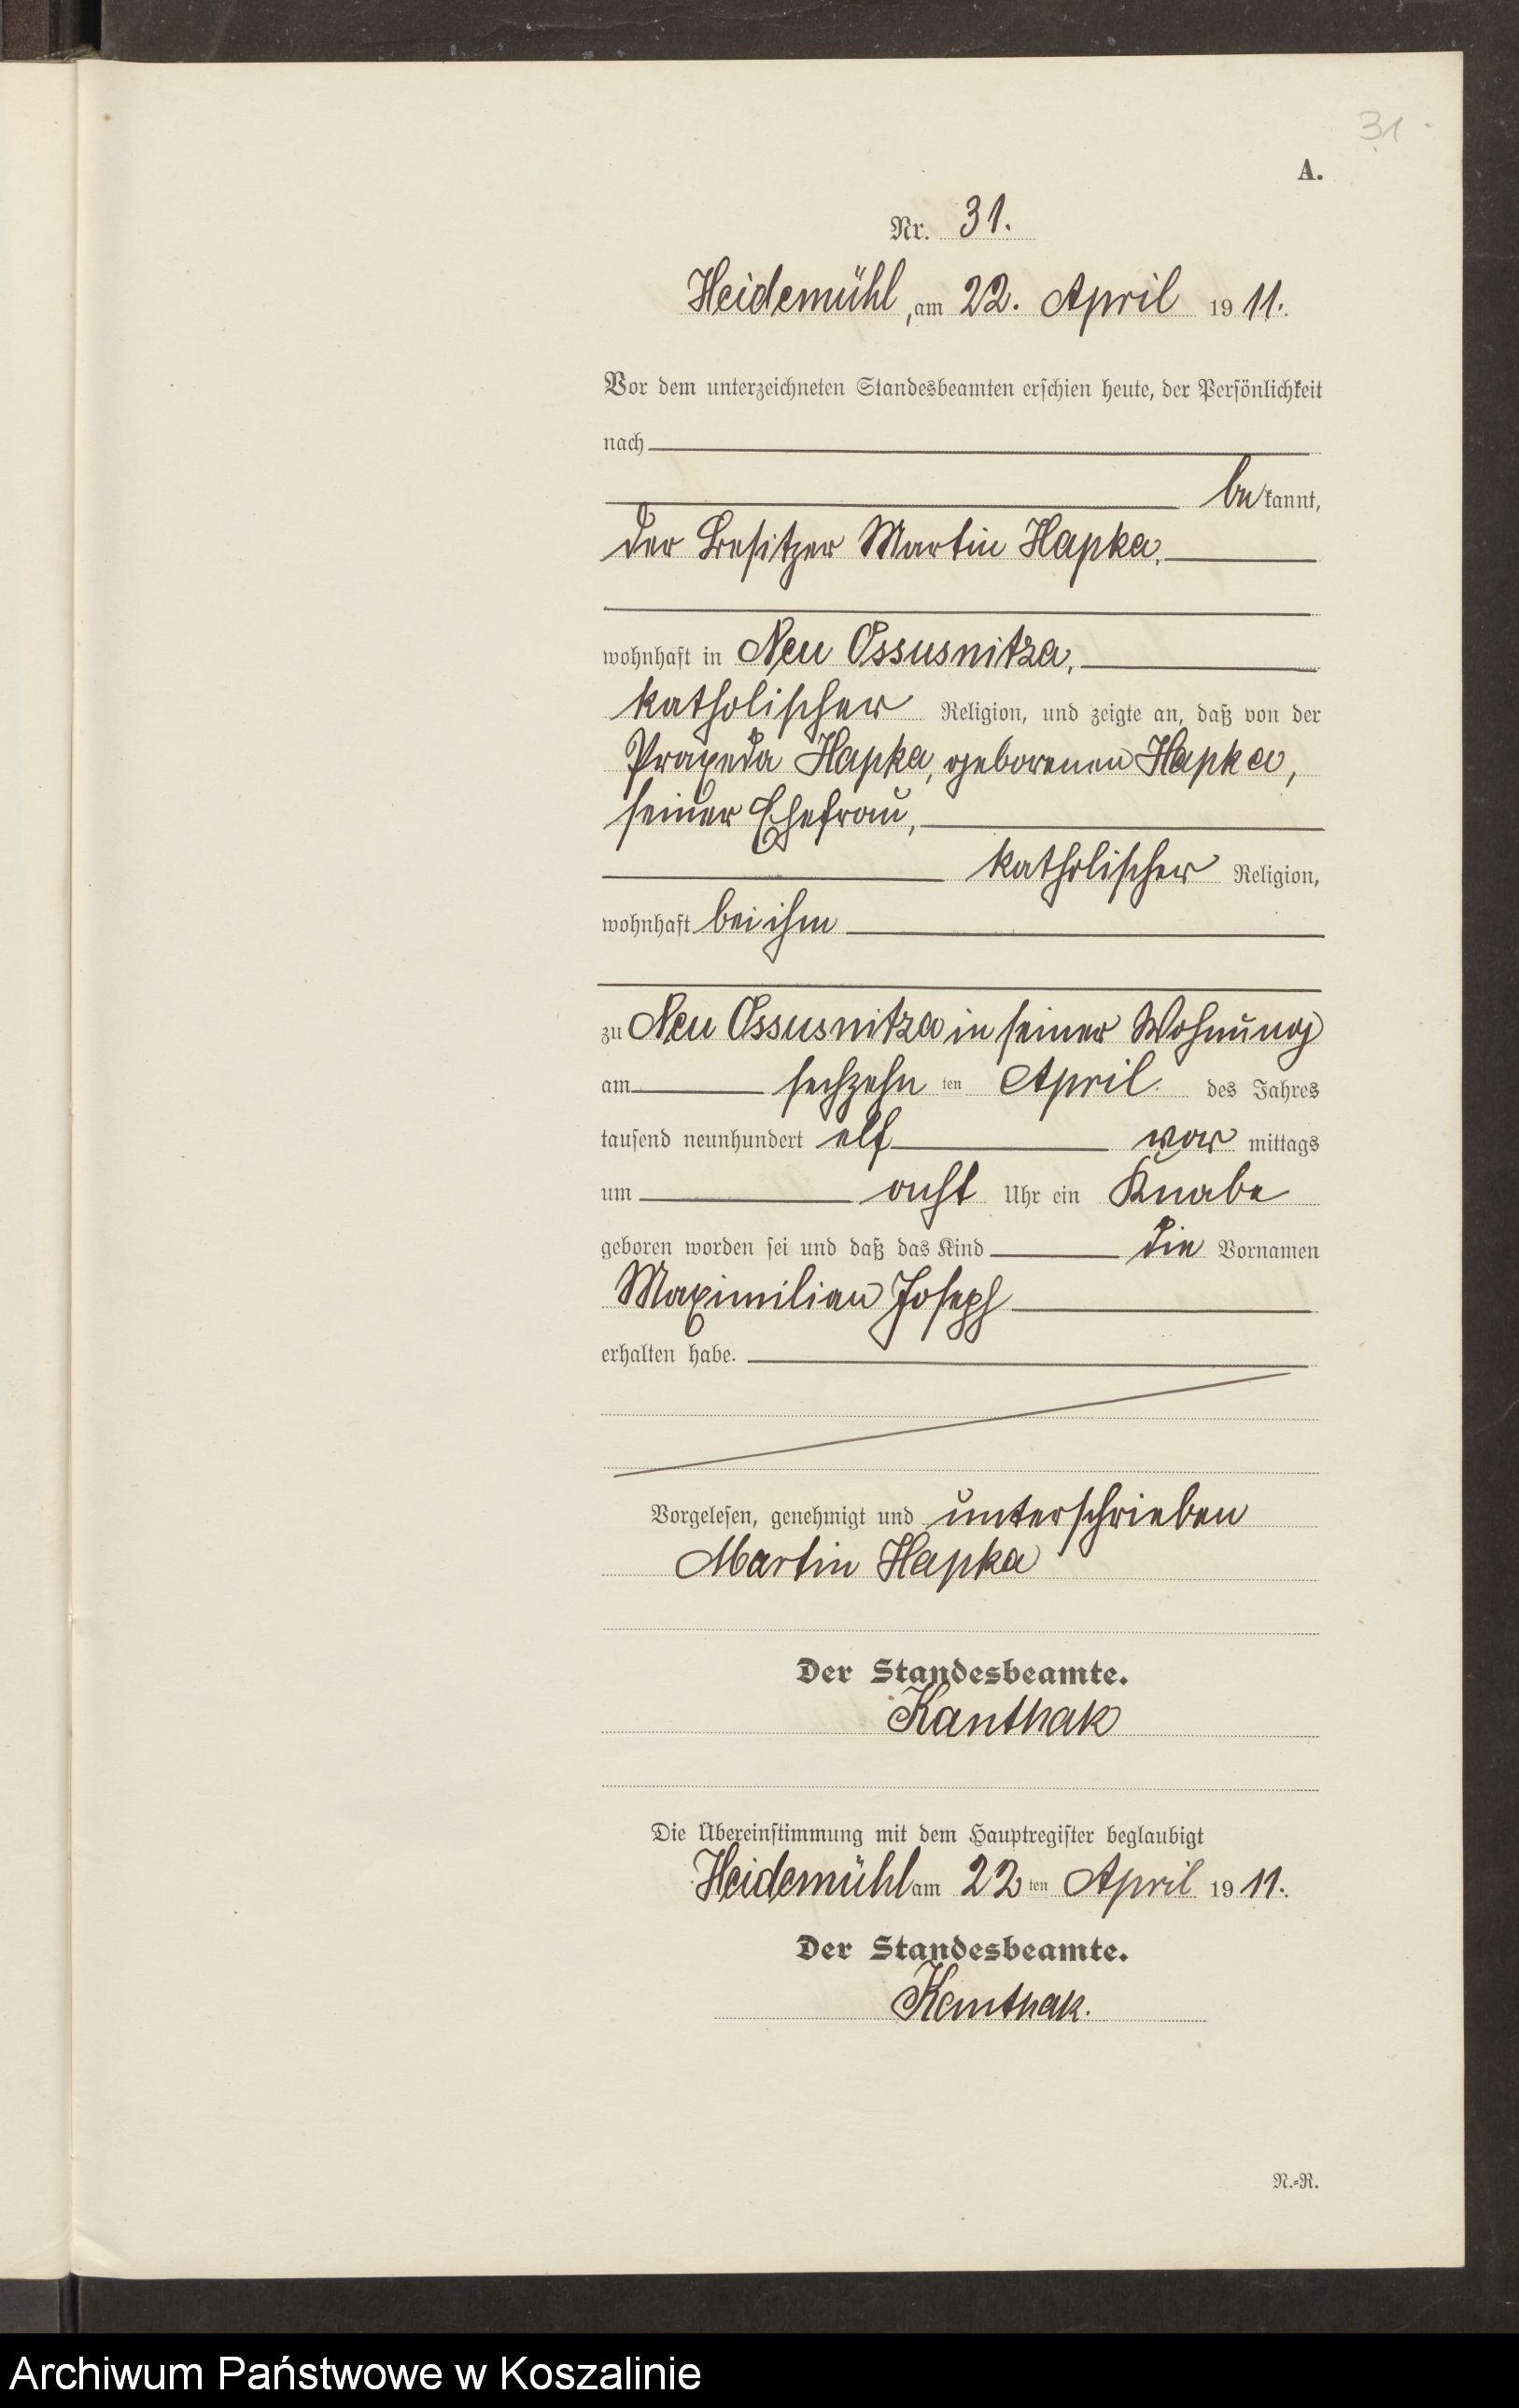 31.
A.
Nr. 31.
Heidemühl, am 22. April 1911.
Vor dem unterzeichneten Standesbeamten erschien heute, der Persönlichkeit
nach
bekannt,
der Besitzer Martin Hapka,
wohnhaft in Neu Ossusnitza,
katholischer Religion, und zeigte an, daß von der
Praxeda Hapka, geborenen Hapka,
seiner Ehefrau,
katholischer Religion,
wohnhaft bei ihm
zu Neu Ossusnitza in seiner Wohnung
am sechzehnten April des Jahres
tausend neunhundert elf vormittags
um acht Uhr ein Knabe
geboren worden sei und daß das Kind die Vornamen
Maximilian Joseph
erhalten habe.
Vorgelesen, genehmigt und unterschrieben
Martin Hapka
Der Standesbeamte.
Kanthak
Die Übereinstimmung mit dem Hauptregister beglaubigt
Heidemühl am 22ten April 1911.
Der Standesbeamte.
Kanthak.
N.-R.
Archiwum Państwowe w Koszalinie